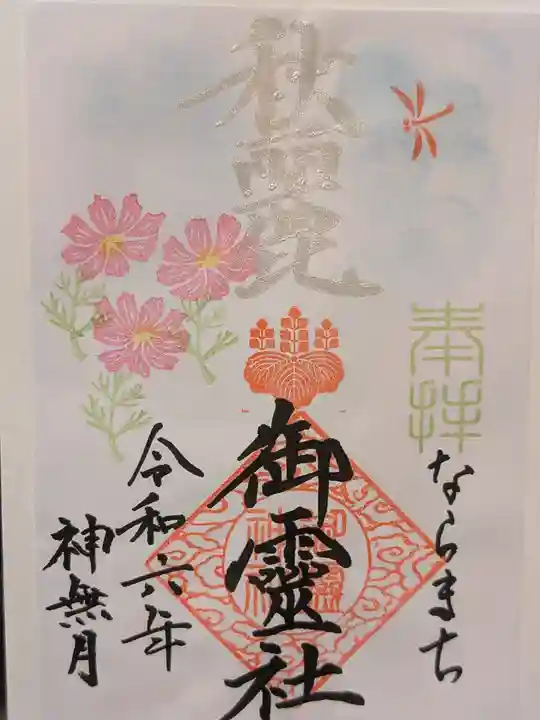 秋麗
奉拝
ならまち
御靈社
令和六年
神無月